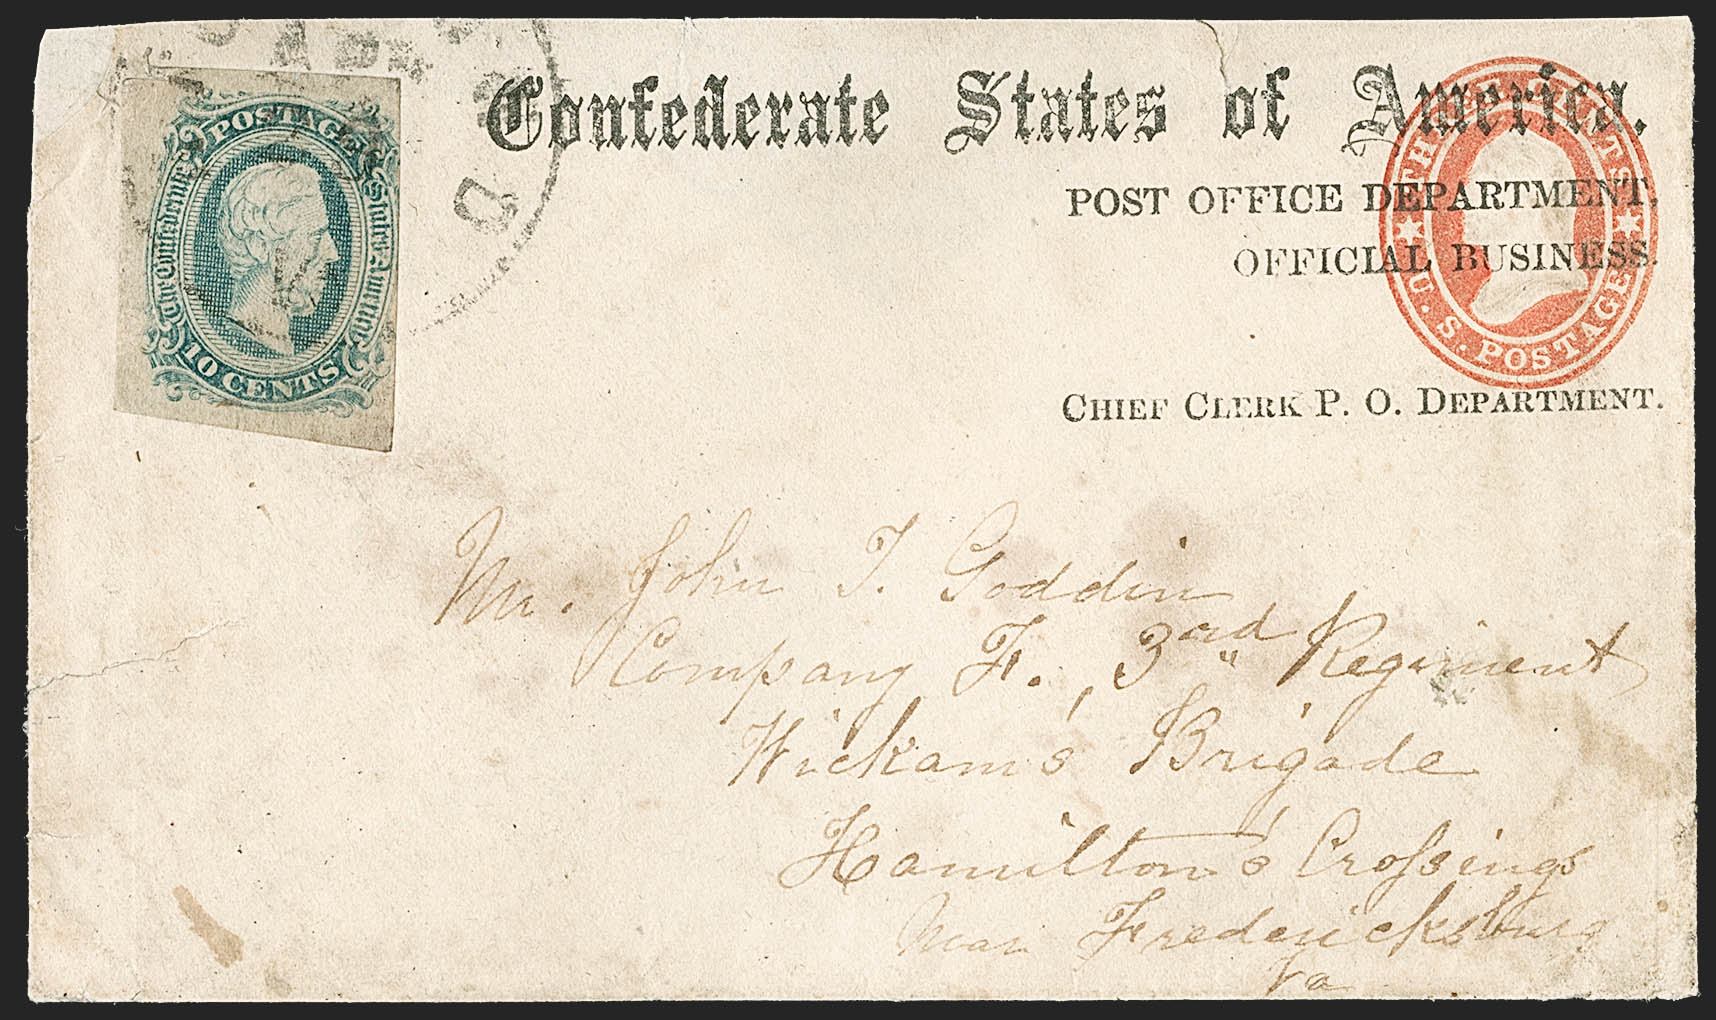 POSTAGE
The Confederate States America
10 CENTS
Confederate States of America.
POST OFFICE DEPARTMENT,
OFFICIAL BUSINESS.
THREE CENTS
U. S. POSTAGE
CHIEF CLERK P. O. DEPARTMENT.
Mr. John T. Goddin
Company F., 3rd Regiment
Wickam's Brigade
Hamilton's Crossings
Near Fredericksburg
Va